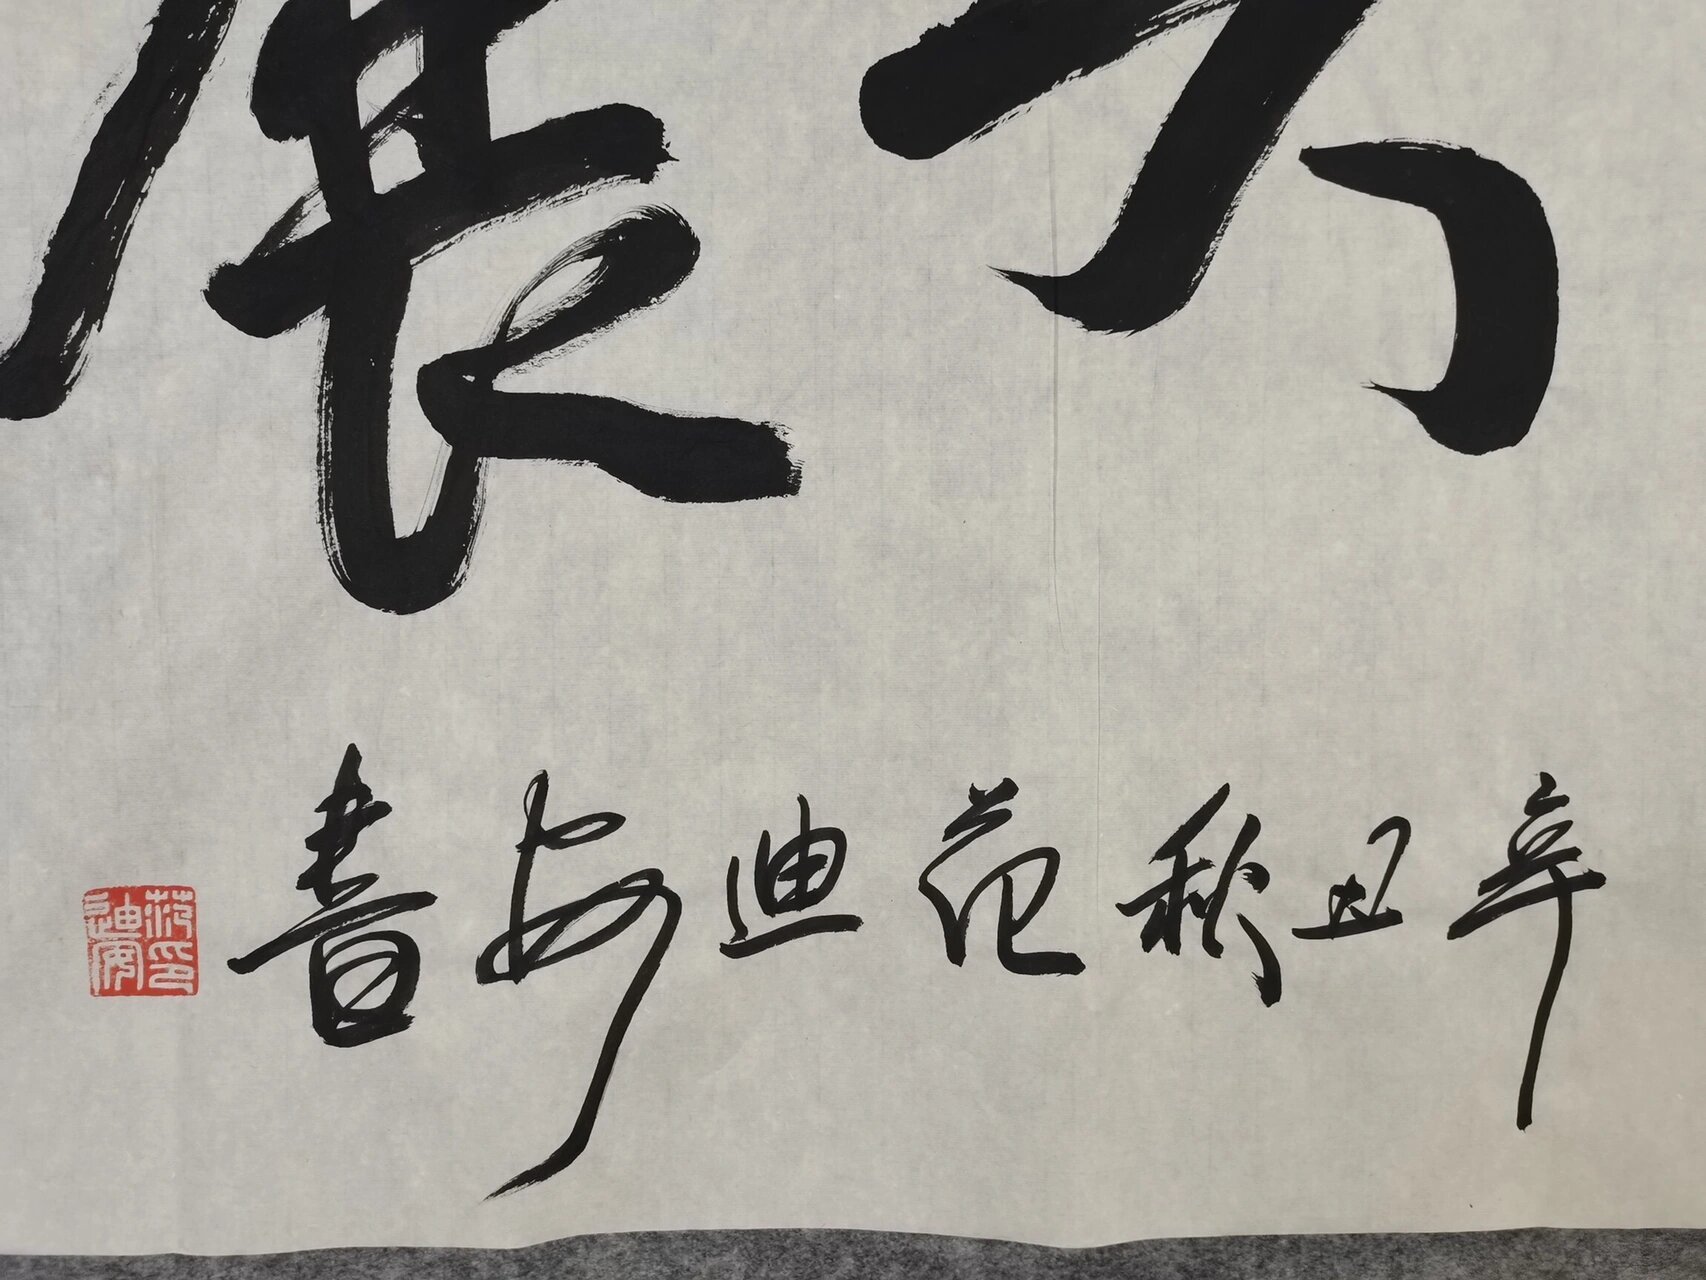 展
辛丑秋范迪安書
范印
迪安